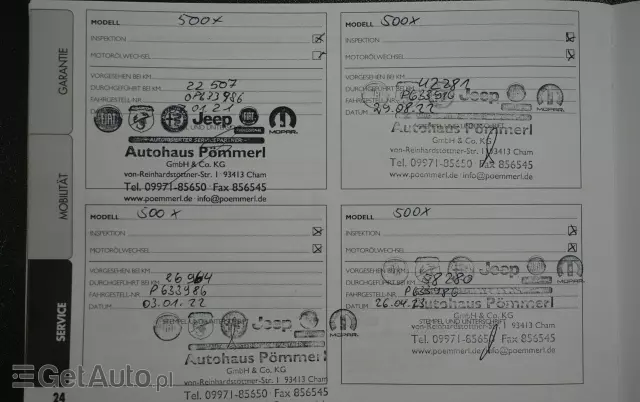 GARANTIE
MOBILITÄT
SERVICE
24
MODELL 500X
INSPEKTION
MOTORÖLWECHSEL
VORGESEHEN BEI KM
DURCHGEFÜHRT BEI KM 22 507
FAHRGESTELL-NR. 0P633986
DATUM
FIAT Jeep MOPAR
AUTORISIERTER SERVICEPARTNER
Autohaus Pömmerl
GmbH & Co. KG
von-Reinhardstöttner-Str. 1 93413 Cham
Tel. 09971-85650 Fax 856545
www.poemmerl.de info@poemmerl.de
MODELL 500X
INSPEKTION
MOTORÖLWECHSEL
VORGESEHEN BEI KM
DURCHGEFÜHRT BEI KM 42 281
FAHRGESTELL-NR. P633986
DATUM 29.08.22
Jeep MOPAR
Autohaus Pömmerl
GmbH & Co. KG
von-Reinhardstöttner-Str. 1 93413 Cham
Tel. 09971-85650 Fax 856545
www.poemmerl.de info@poemmerl.de
MODELL 500X
INSPEKTION
MOTORÖLWECHSEL
VORGESEHEN BEI KM
DURCHGEFÜHRT BEI KM 26 964
FAHRGESTELL-NR. P633986
DATUM 03.01.22
STEMPEL UND UNTERSCHRIFT
Jeep MOPAR
Autohaus Pömmerl
GmbH & Co. KG
von-Reinhardstöttner-Str. 1 93413 Cham
Tel. 09971-85650 Fax 856545
www.poemmerl.de info@poemmerl.de
MODELL 500X
INSPEKTION
MOTORÖLWECHSEL
VORGESEHEN BEI KM
DURCHGEFÜHRT BEI KM 58 280
FAHRGESTELL-NR. P633986
DATUM 26.04.23
Jeep
Autohaus Pömmerl
STEMPEL UND UNTERSCHRIFT
GmbH & Co. KG
von-Reinhardstöttner-Str. 1 93413 Cham
Tel. 09971-85650 Fax 856545
www.poemmerl.de info@poemmerl.de
GetAuto.pl